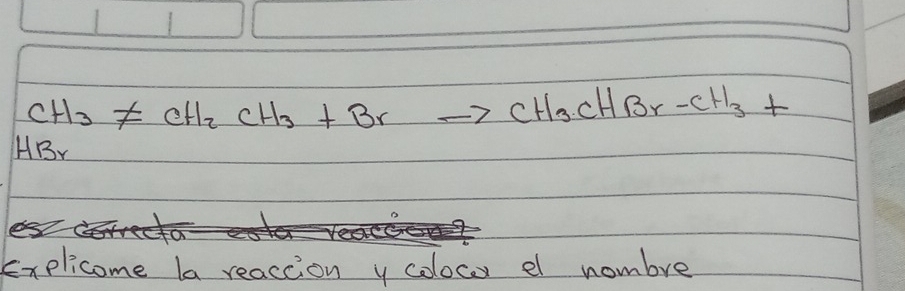 CH3 ≠ CH2 CH3 + Br → CH3.CHBr-CH3 +
HBr
es correcta esta reaccion?
Explicome la reaccion y colocar el nombre